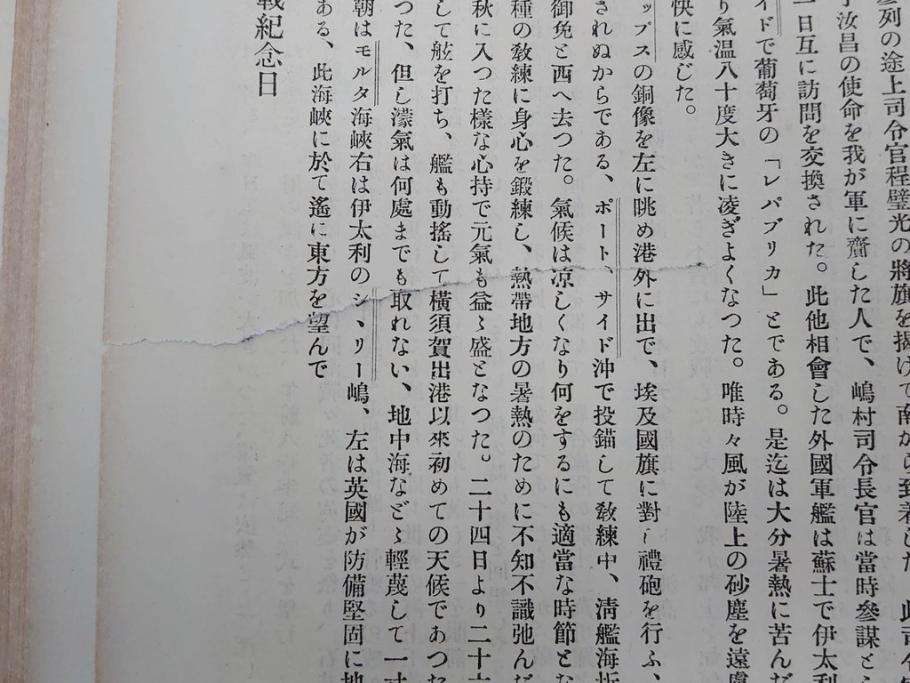 参列の途上司令官程璧光の將旗を揚げて南から到着した。此司令
丁汝昌の使命を我が軍に齎した人で、嶋村司令長官は當時參謀と
一日互に訪問を交換された。此他相會した外國軍艦は蘇士で伊太利
イドで葡萄牙の「レパブリカ」とである。是迄は大分暑熱に苦んだ
り氣温八十度大きに凌ぎよくなつた。唯時々風が陸上の砂塵を遠慮
快に感じた。
ップスの銅像を左に眺め港外に出で、埃及國旗に對し禮砲を行ふ、
されぬからである、ポート、サイド沖で投錨して敎練中、淸艦海圻
御免と西へ去つた。氣候は凉しくなり何をするにも適當な時節とな
種の敎練に身心を鍛練し、熱帶地方の暑熱のために不知不識弛んだ
秋に入つた樣な心持で元氣も益〻盛となつた。二十四日より二十六
して舷を打ち、艦も動搖して橫須賀出港以來初めての天候であつた
つた、但し濛氣は何處までも取れない、地中海などゝ輕蔑して一寸
朝はモルタ海峽右は伊太利のシヽリー嶋、左は英國が防備堅固に地
ある、此海峽に於て遙に東方を望んで
戰紀念日